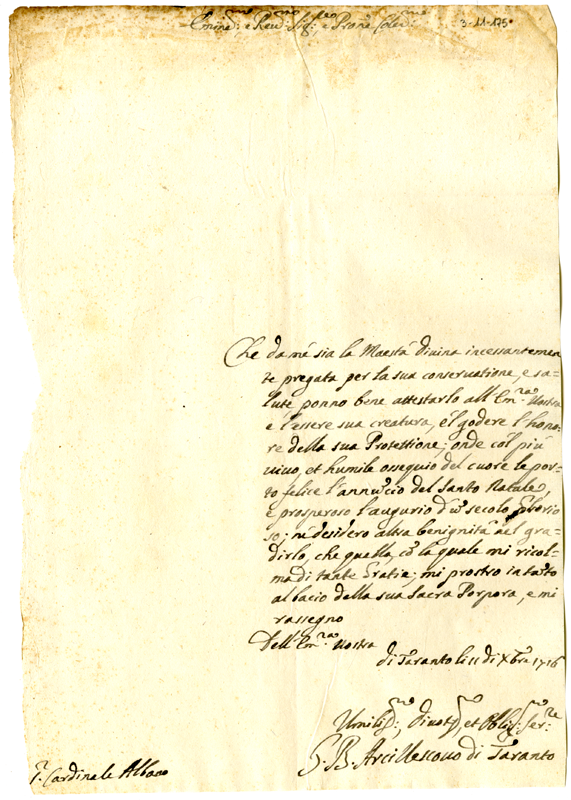 Emin.mo e Rev.mo Sig.re e Pron.e Col.mo
3-11-175
Che da mé sia la Maestà divina incessantemen=
te pregata per la sua conservatione, e sa=
lute, ponno bene attestarlo all' Em.za Vostra
e l'essere sua creatura, e 'l godere l'hono=
re della sua Protettione; onde col più
vivo, et humile ossequio del cuore le por=
to felice l'annucio del Santo Natale,
e prosperoso l'augurio d'un secolo glorio
so; né desidero altra benignità nel gra=
dirlo, che quella, cō la quale mi ricol=
ma di tante Gratie; mi prostro in tāto
al bacio della sua Sacra Porpora, e mi
rassegno
Dell' Em.za Vostra
di Taranto li 11 di Xbre 1716
Umiliss.mo, divot.mo, et Oblig.mo Ser.re
G. B. Arcivescovo di Taranto
Cardinale Albano